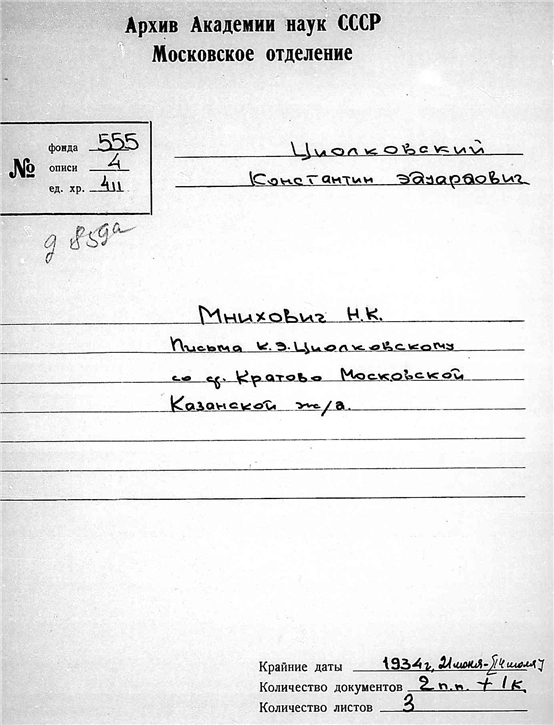 Архив Академии наук СССР
Московское отделение
№
фонда 555
описи 4
ед. хр. 411
Циолковский
Константин Эдуардович
д 85да
Мнихович Н.К.
Письма К.Э.Циолковскому
со ст. Кратово Московской
Казанской ж/д.
Крайние даты 1934г, 21 июня - [14 июля]
Количество документов 2 п.п. + 1 к.
Количество листов 3